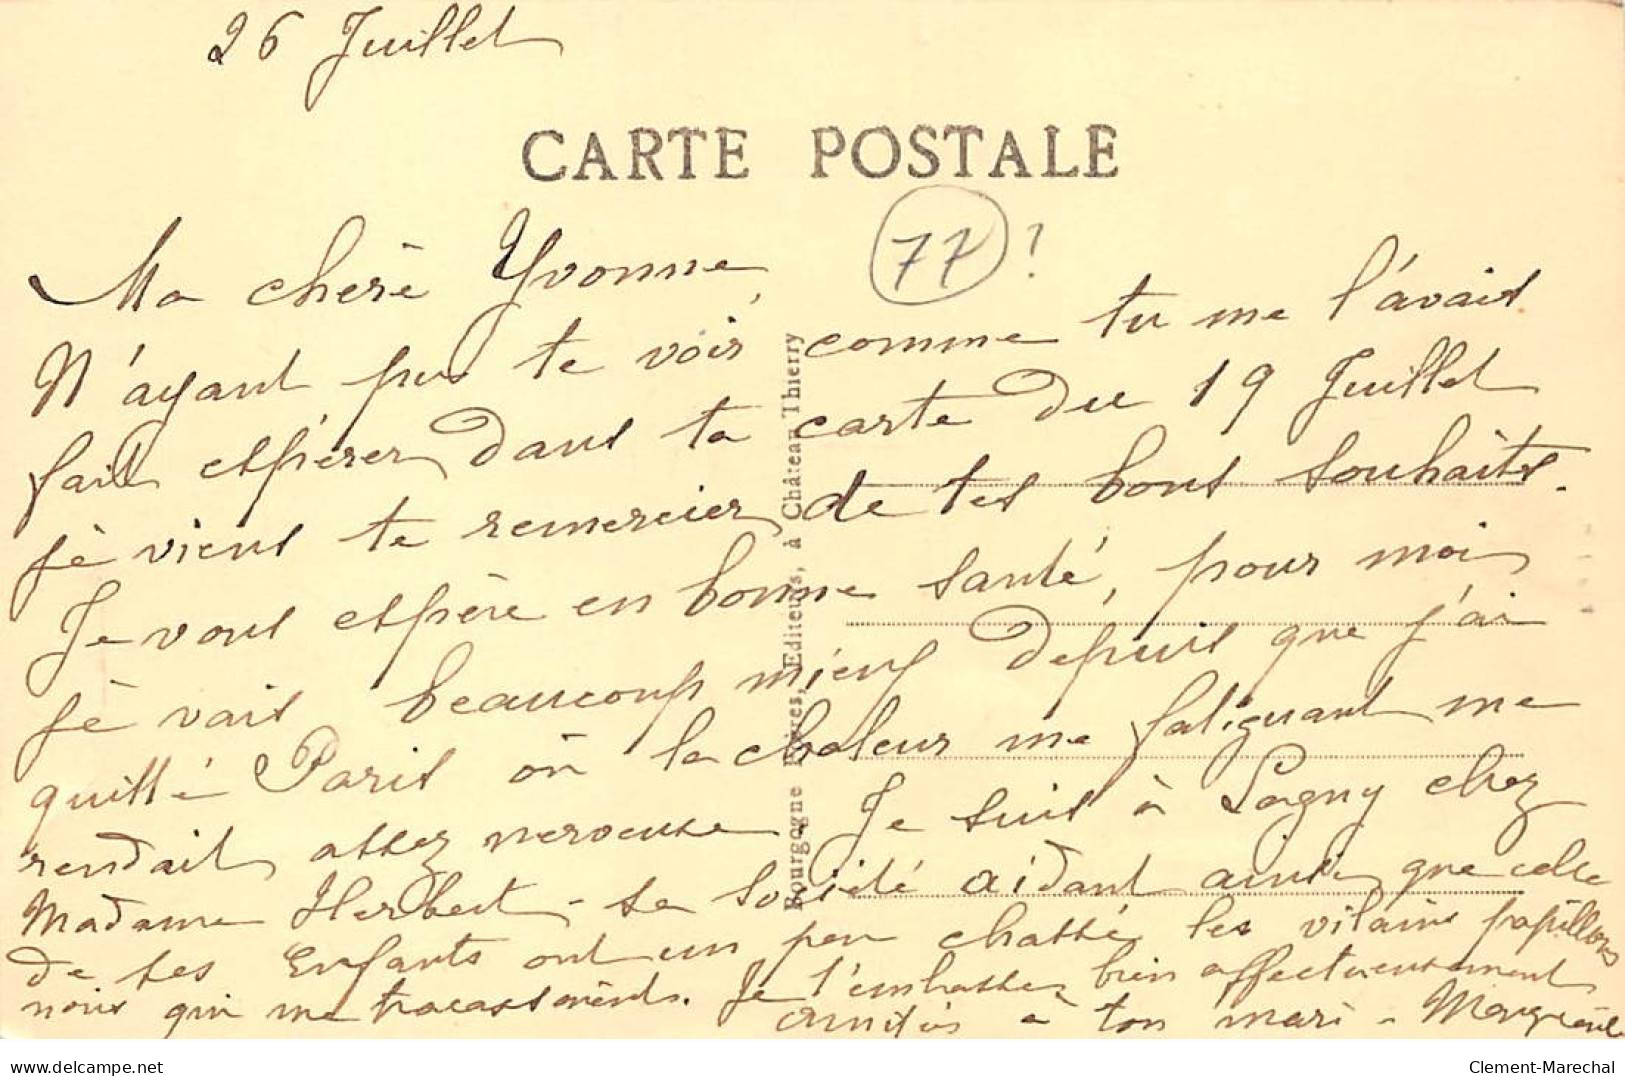 26 Juillet
CARTE POSTALE
77 ?
Ma chère Yvonne
N'ayant pus te voir comme tu me l'àvais
fait espérer dans ta carte du 19 Juillet
je viens te remercier de tes bons souhaits.
Je vous espère en bonne santé, pour moi
je vais beaucoup mieux dépuis que j'ai
quitté Paris où la chaleur me fatiguant me
rendait assez nerveuse. Je suis à Lagny chez
Madame Herbert - sa société aidant ainsi que celle
de ses Enfants ont un peu chassé les vilains papillons
noirs qui me tracassaients. Je t'embrasse bien affectueusement
amitiés à ton mari -
Bourgogne Frères, Editeurs, à Château Thierry
delcampe.net
Clement-Marechal